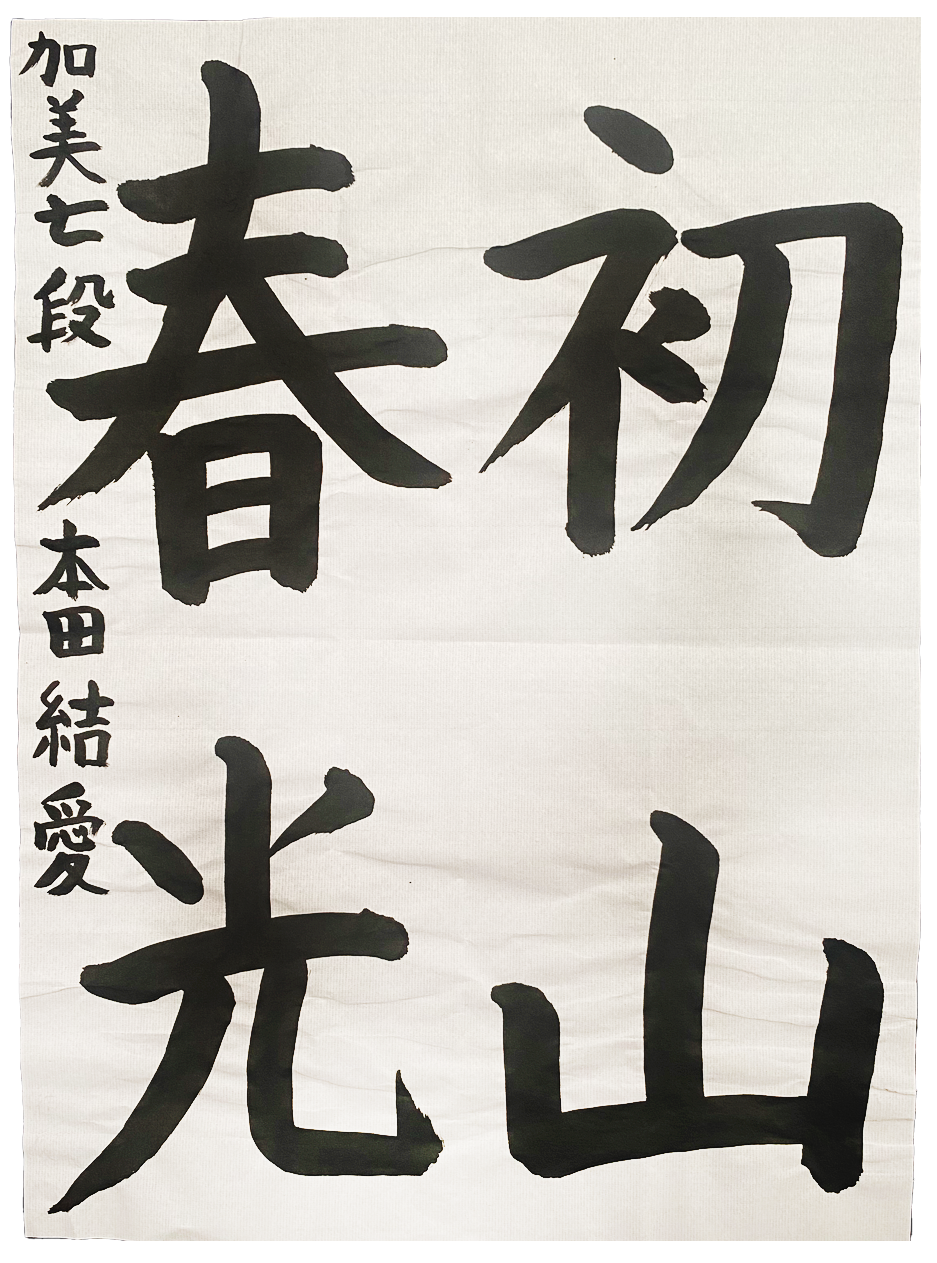 初山
春光
加美七段 本田結愛